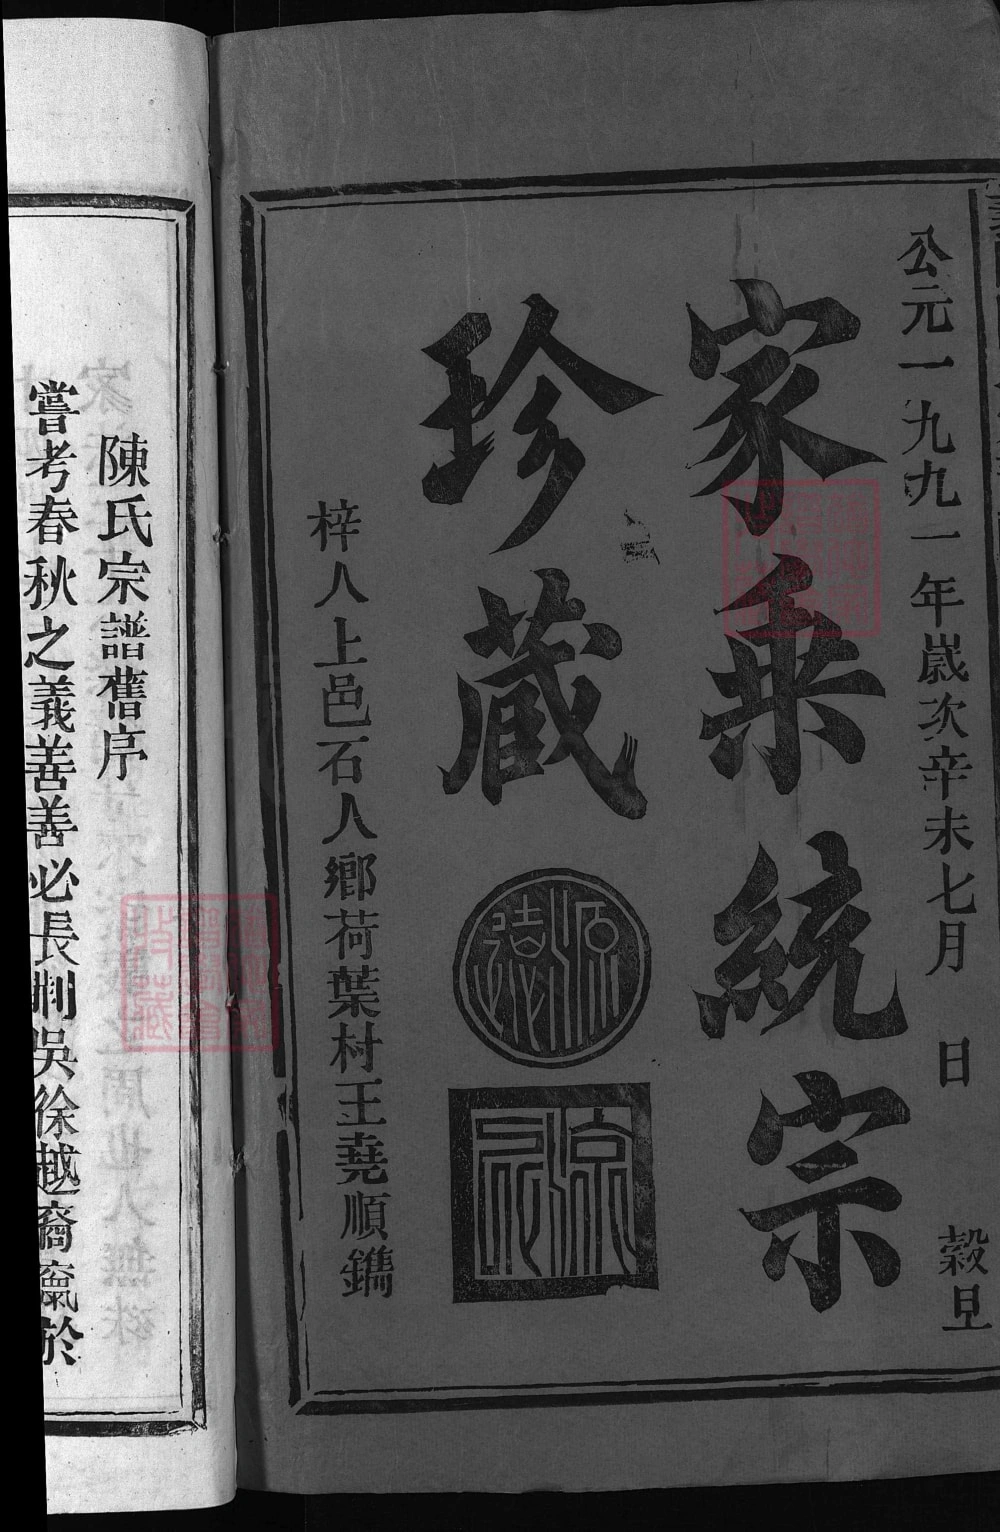 公元一九九一年歲次辛未七月　日　穀旦
家乘統宗
珍藏
源遠
源流
梓人上邑石人鄉荷葉村王堯順鐫
陳氏宗譜舊序
嘗考春秋之義善善必長荆吳徐越裔